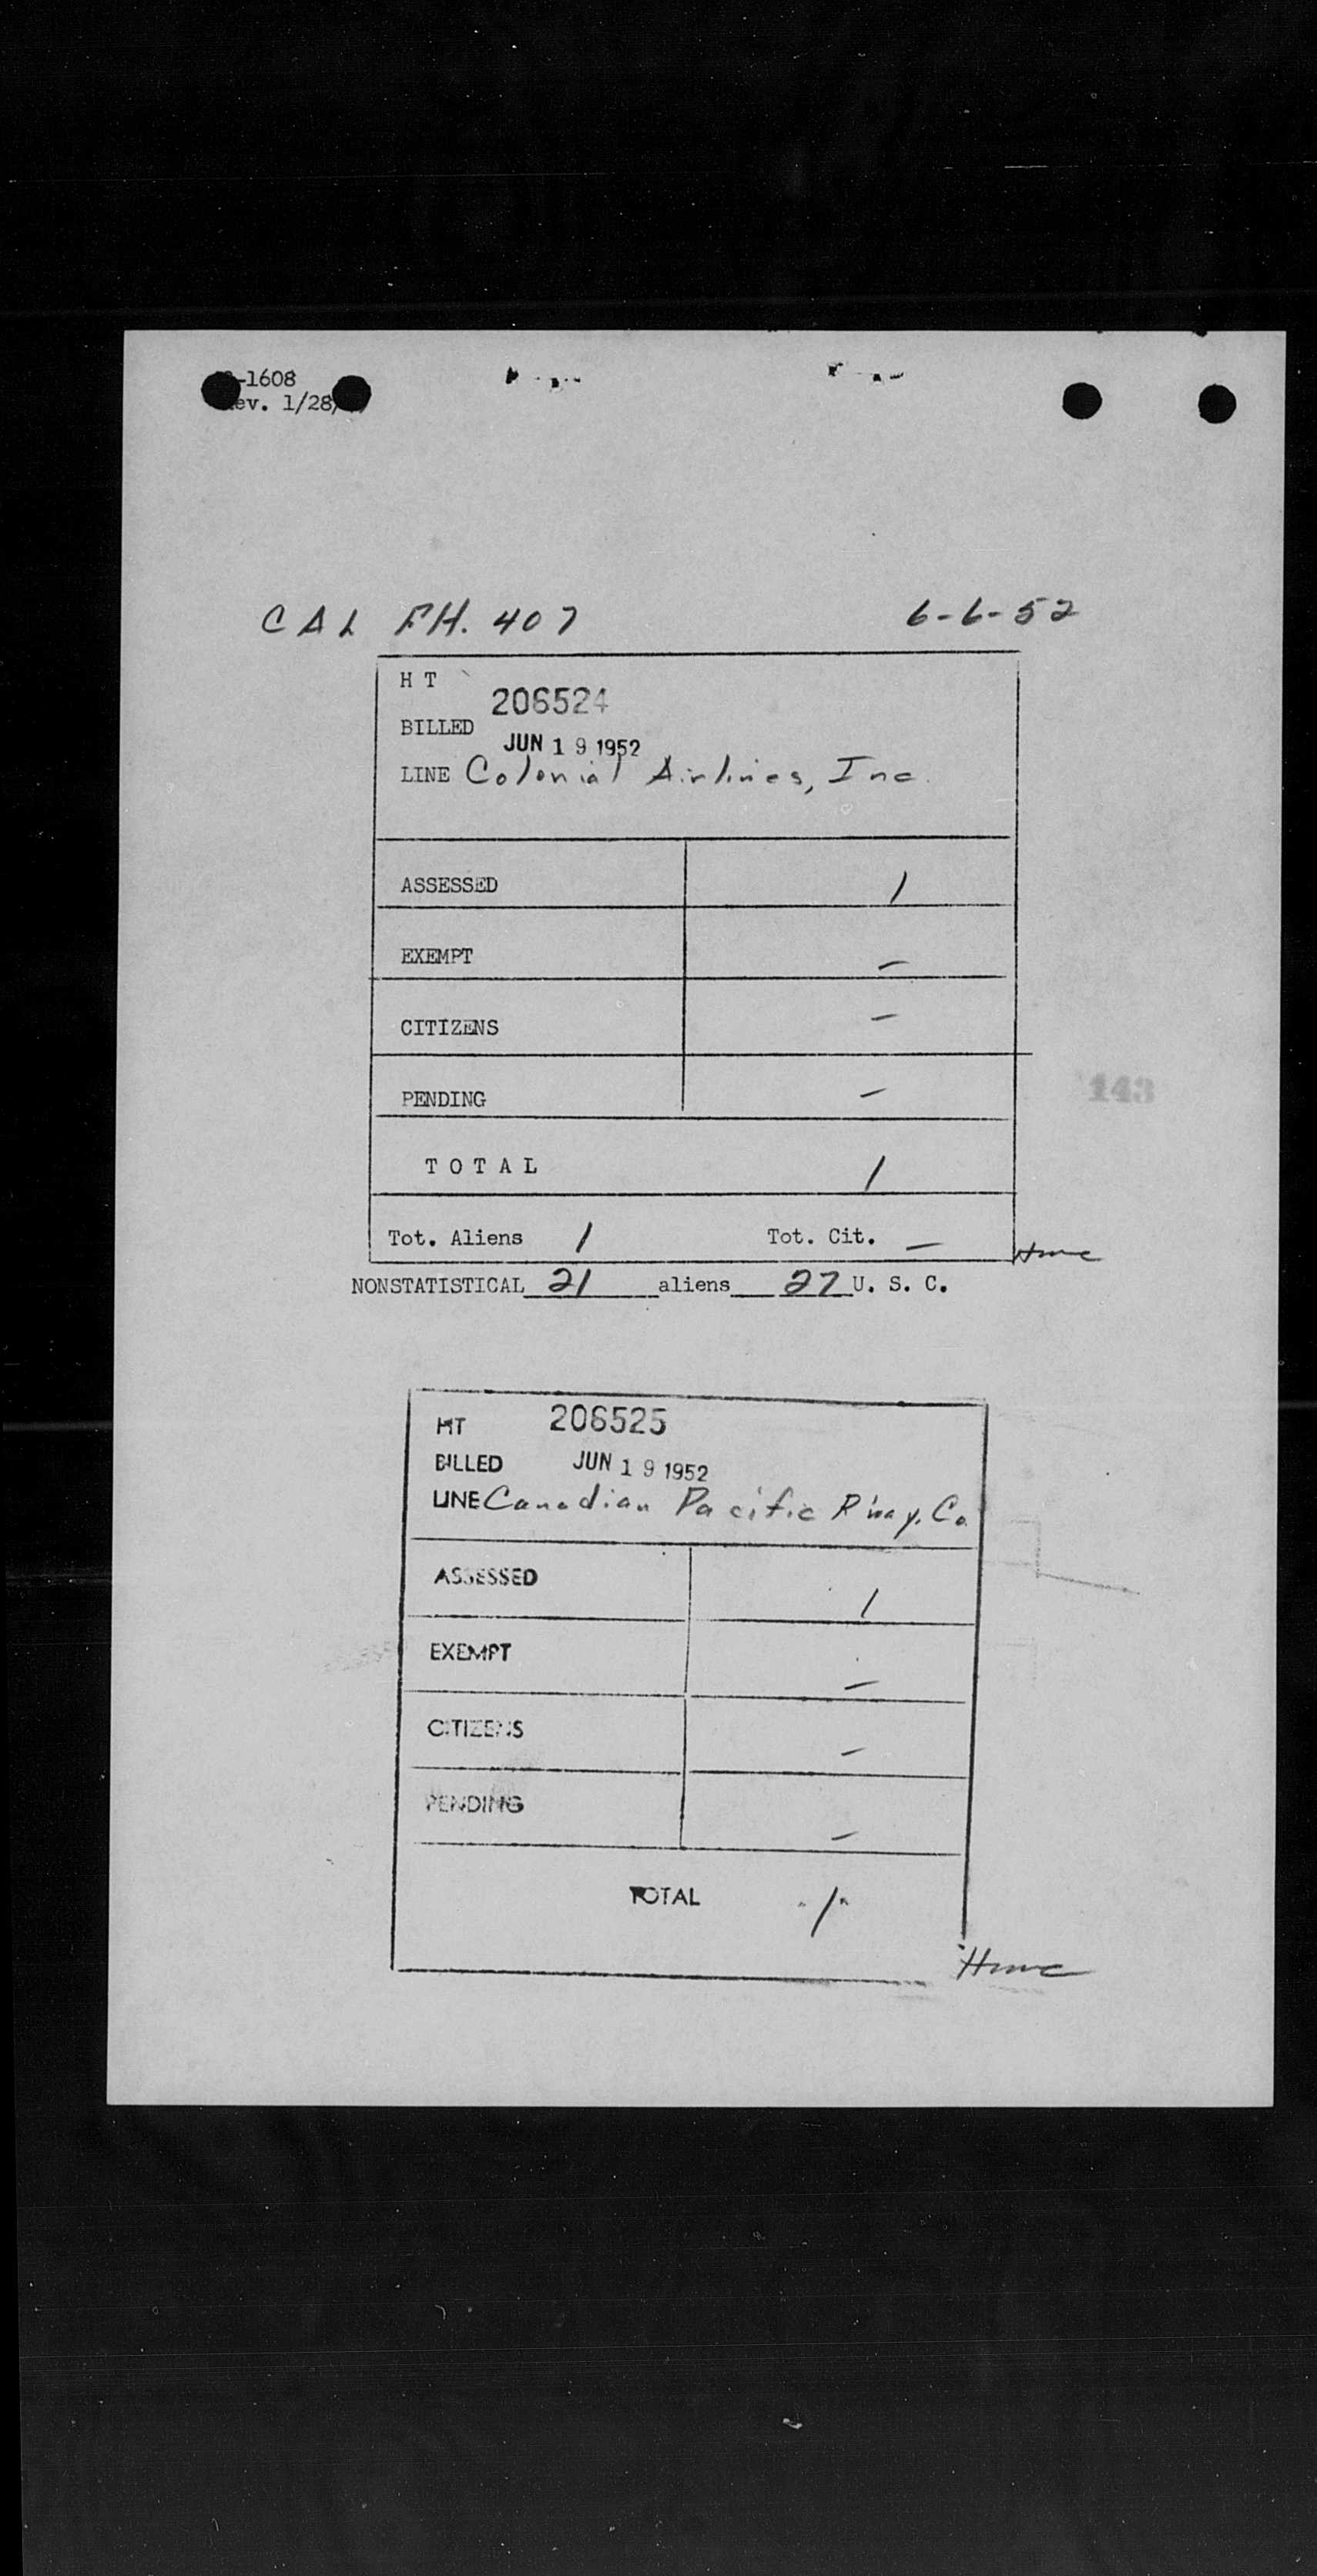 -1608
ev. 1/28/
CAL FH. 407 6-6-52
H T 206524
BILLED JUN 19 1952
LINE Colonial Airlines, Inc.
ASSESSED 1
EXEMPT –
CITIZENS –
PENDING –
143
T O T A L 1
Tot. Aliens 1 Tot. Cit. –
NONSTATISTICAL 21 aliens 27 U. S. C.
HT 206525
BILLED JUN 19 1952
LINE Canadian Pacific R'way. Co.
ASSESSED 1
EXEMPT –
CITIZENS –
PENDING –
TOTAL 1